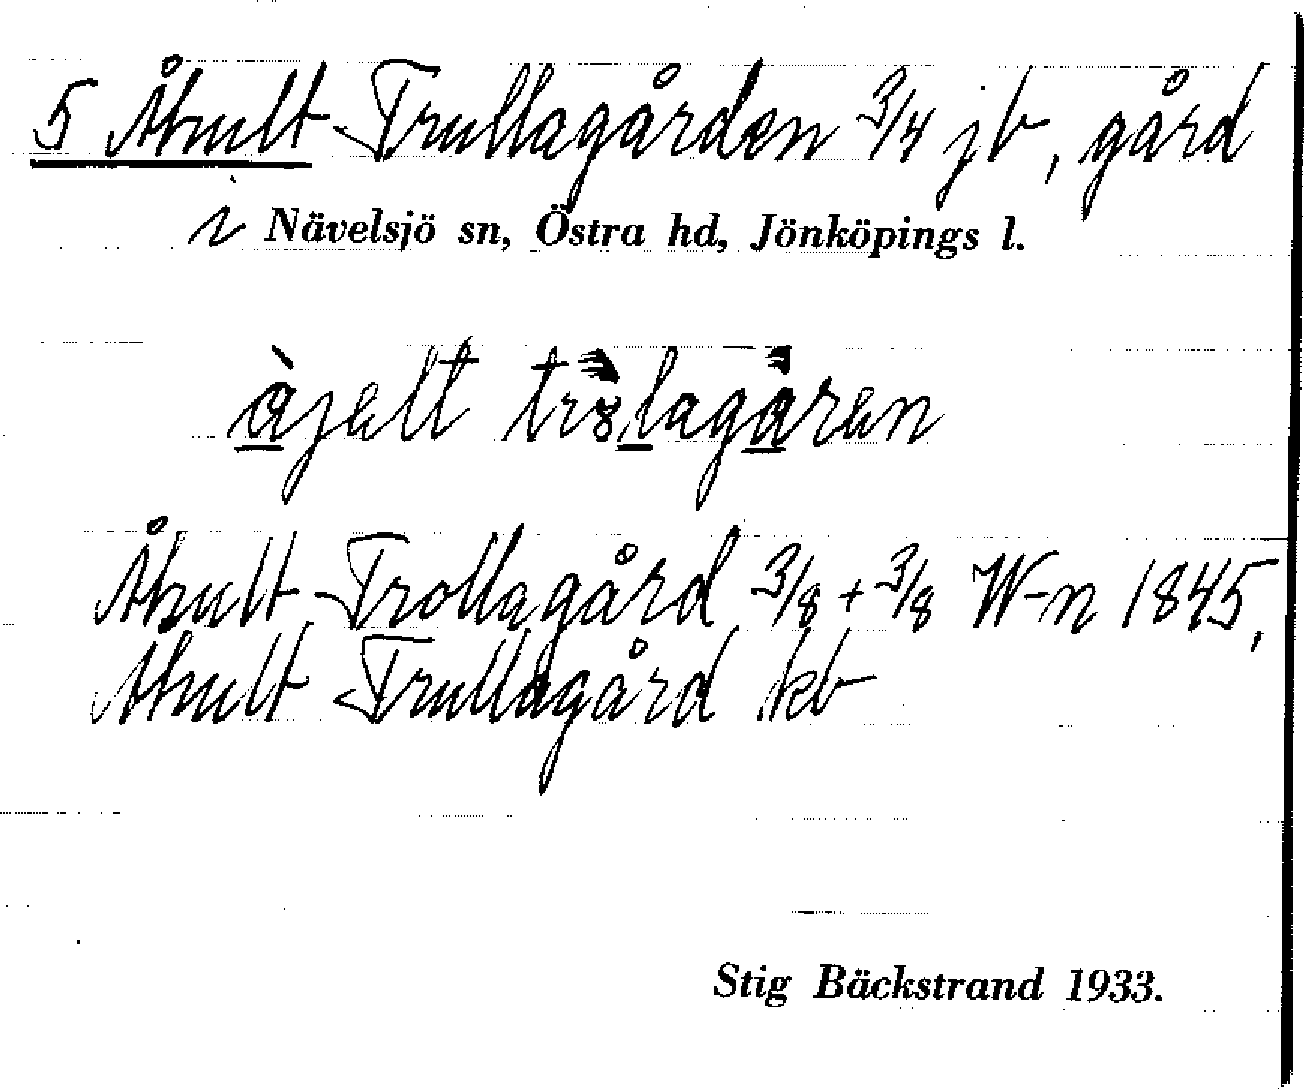 5 Åhult Trullagården 3/4 jb, gård
i Nävelsjö sn, Östra hd, Jönköpings l.
Åhult Trollagård 3/8 + 3/8 W-n 1845,
Åhult Trullagård kb
Stig Bäckstrand 1933.